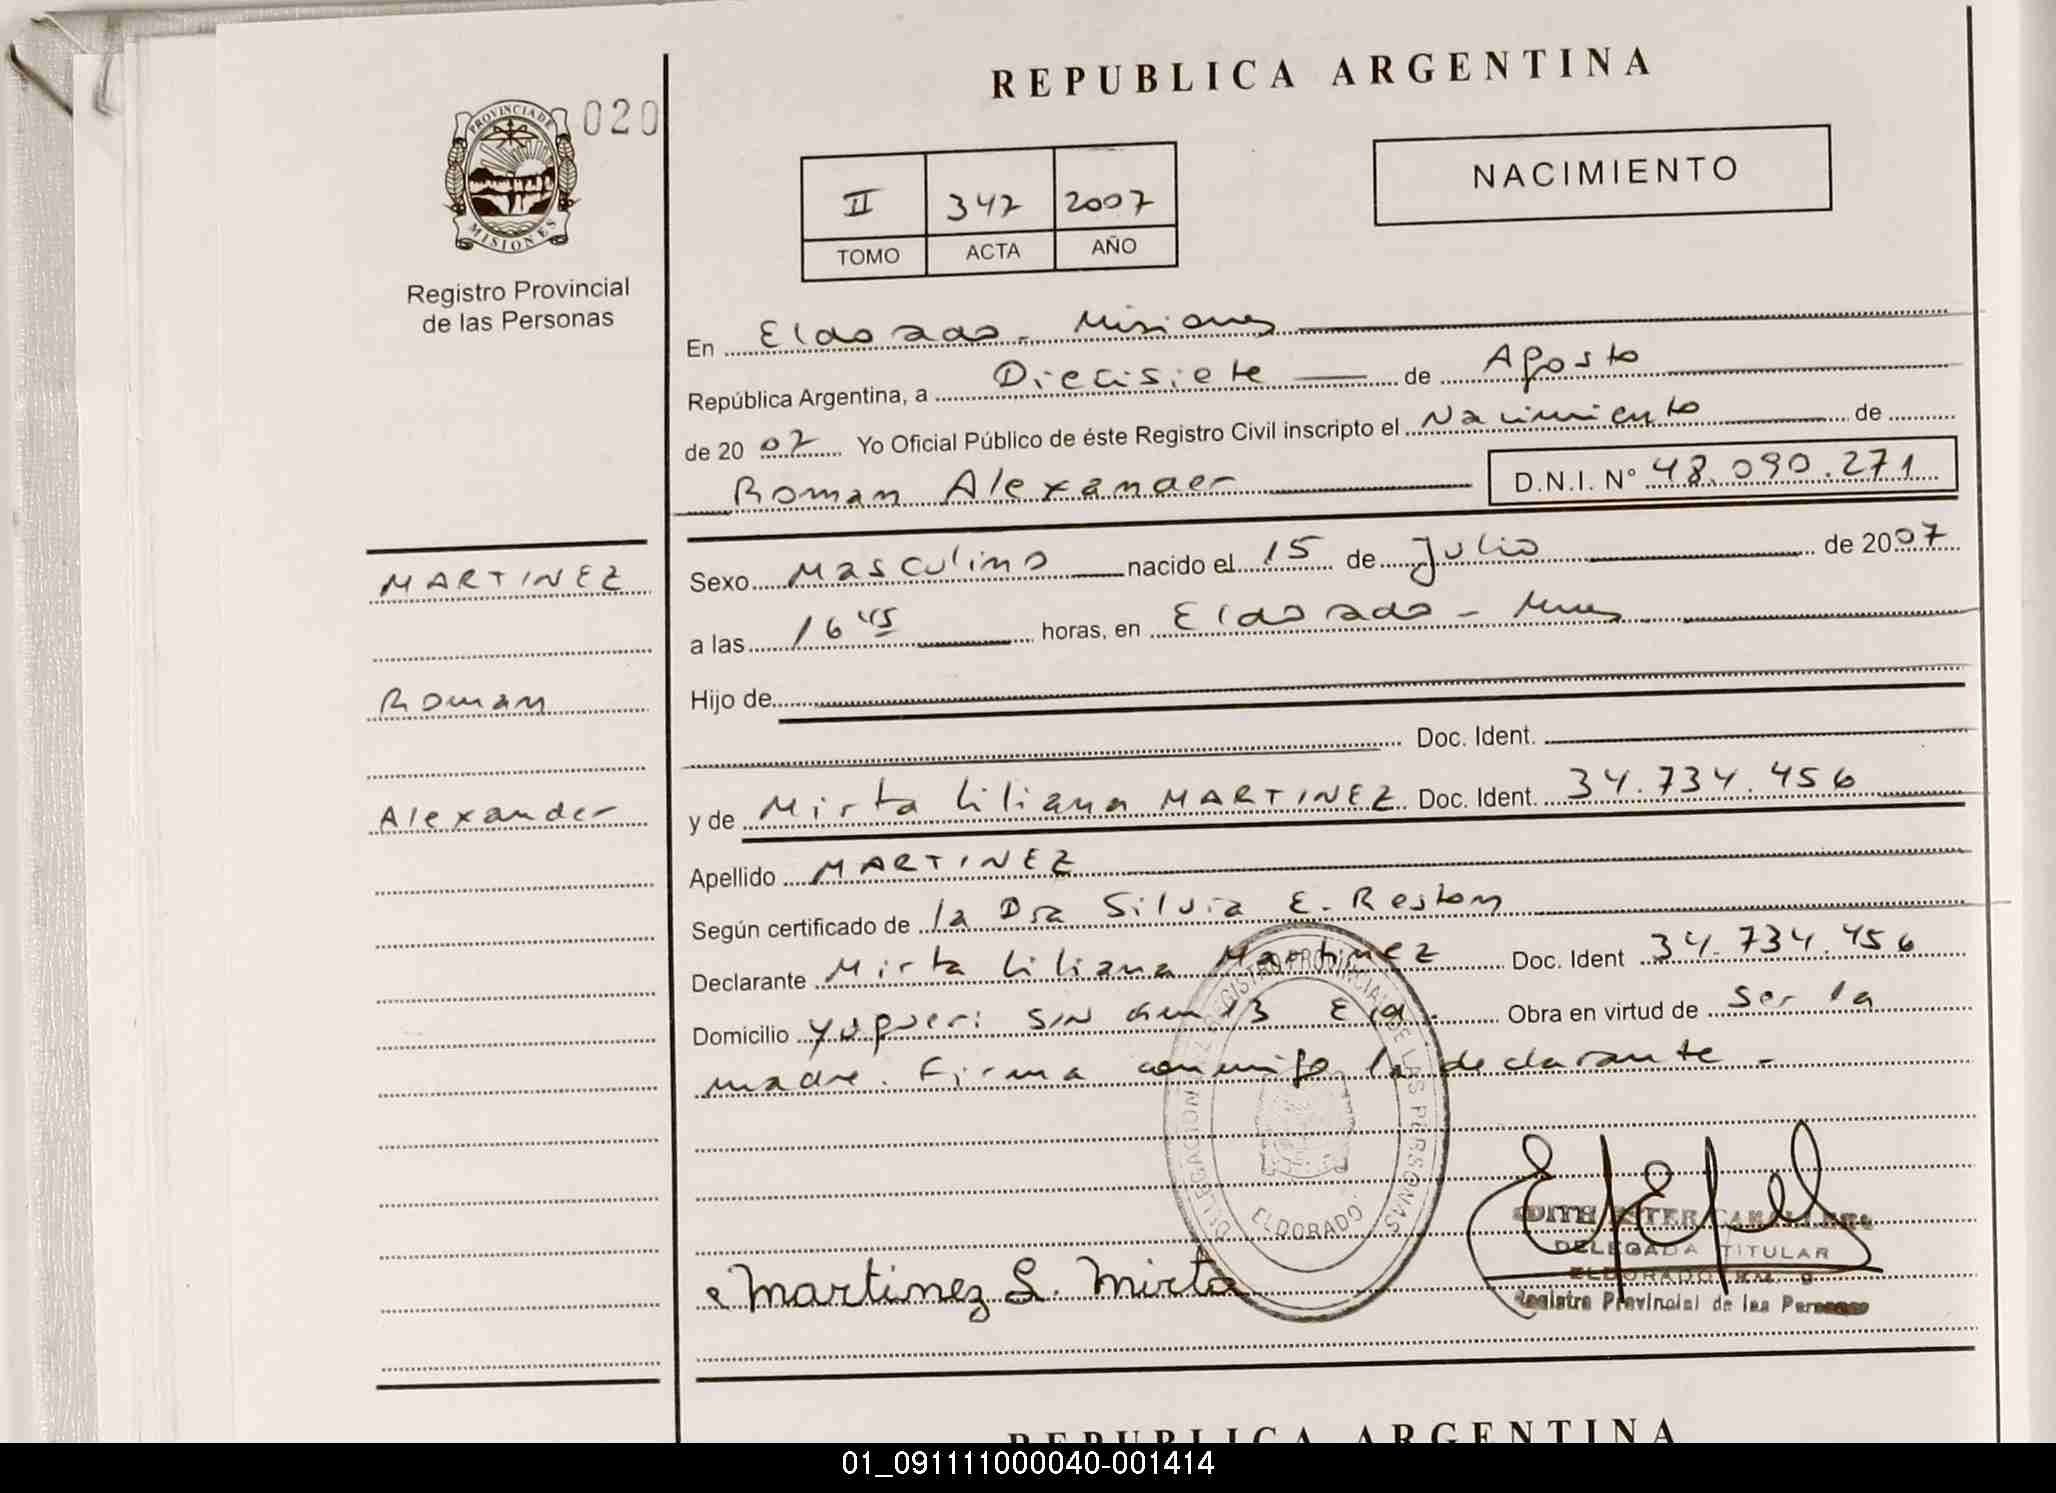 REPUBLICA ARGENTINA
PROVINCIA DE
MISIONES
020
Registro Provincial
de las Personas
NACIMIENTO
II 347 2007
TOMO ACTA AÑO
En Eldorado - Misiones
República Argentina, a Diecisiete de Agosto
de 2007 Yo Oficial Público de éste Registro Civil inscripto el Nacimiento de
Roman Alexander D.N.I. N° 48.090.271
MARTINEZ
Roman
Alexander
Sexo Masculino nacido el 15 de Julio de 2007
a las 16 45 horas, en Eldorado - Mnes
Hijo de
Doc. Ident.
y de Mirta Liliana MARTINEZ Doc. Ident. 34.734.456
Apellido MARTINEZ
Según certificado de la Dra Silvia E. Reston
Declarante Mirta Liliana Martinez Doc. Ident 34.734.456
Domicilio Yuqueri S/N Km 13 Eld. Obra en virtud de ser la
madre. Firma conmigo la declarante -
DELEGACION REGISTRO PROVINCIAL DE LAS PERSONAS
ELDORADO
Martinez L. Mirta
EDITH ESTER
DELEGADA TITULAR
ELDORADO KM. 9
Registro Provincial de las Personas
REPUBLICA ARGENTINA
01_091111000040-001414